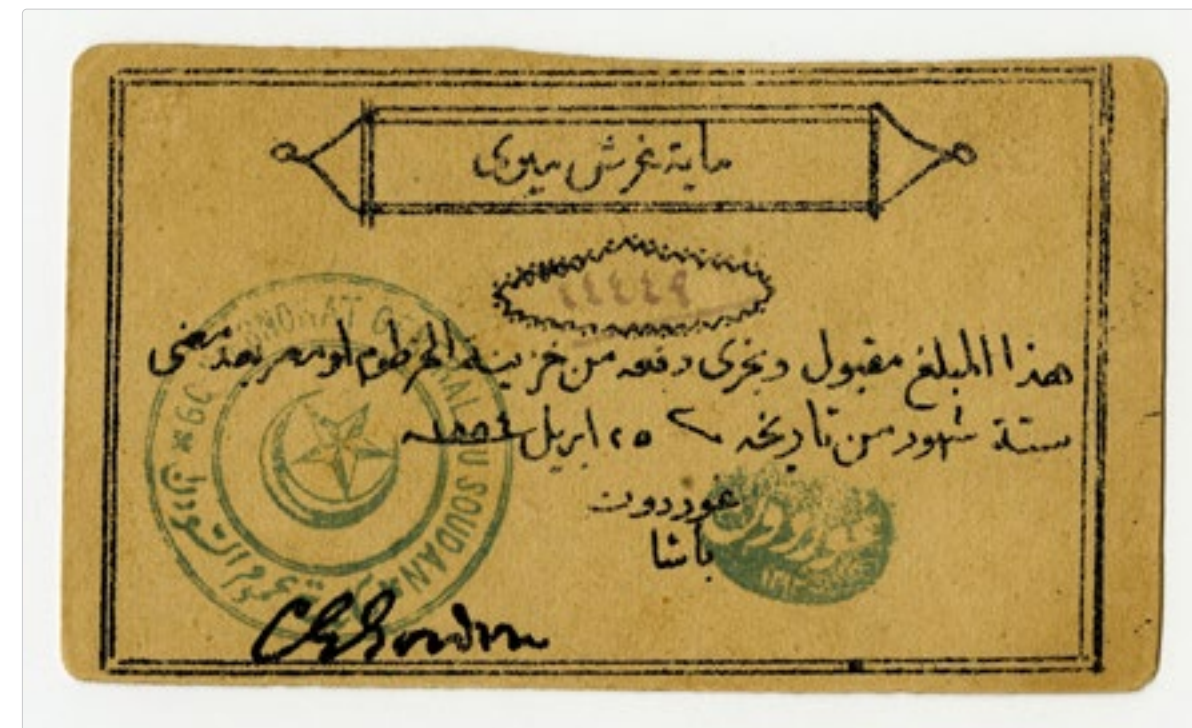 ماية غرش ميرى
هذا المبلغ مقبول ويجرى دفعه من خزينة الخرطوم او مصر بعد مضى
ستة شهور من تاريخه ٢٥ ابريل سنة ١٨٨٤
غوردون
باشا
GENERAL DU SOUDAN
عموم السودان
C G Gordon